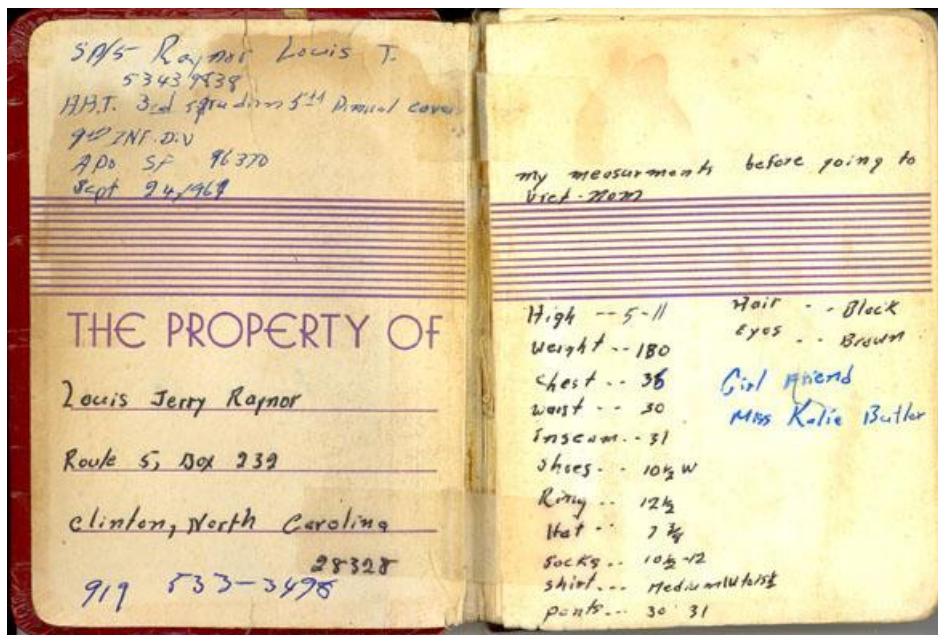 SP/5 Raynor Louis T.
53439838
H.H.T. 3rd 5th
9th INF. DIV
APO SF 96370
Sept 24, 196
THE PROPERTY OF
Louis Jerry Raynor
Route 5, Box 232
Clinton, North Carolina
28328
919 533-3498
my measurments before going to
Viet-Nam
High -- 5-11
Weight -- 180
Chest -- 38
waist -- 30
Inseam -- 31
Shoes -- 10½ W
Ring -- 12½
Hat -- 7 ⅜
Socks -- 10½-12
Shirt --- Medium
pants --- 30 31
Hair -- Black
Eyes -- Brown
Girl Friend
Miss Katie Butler